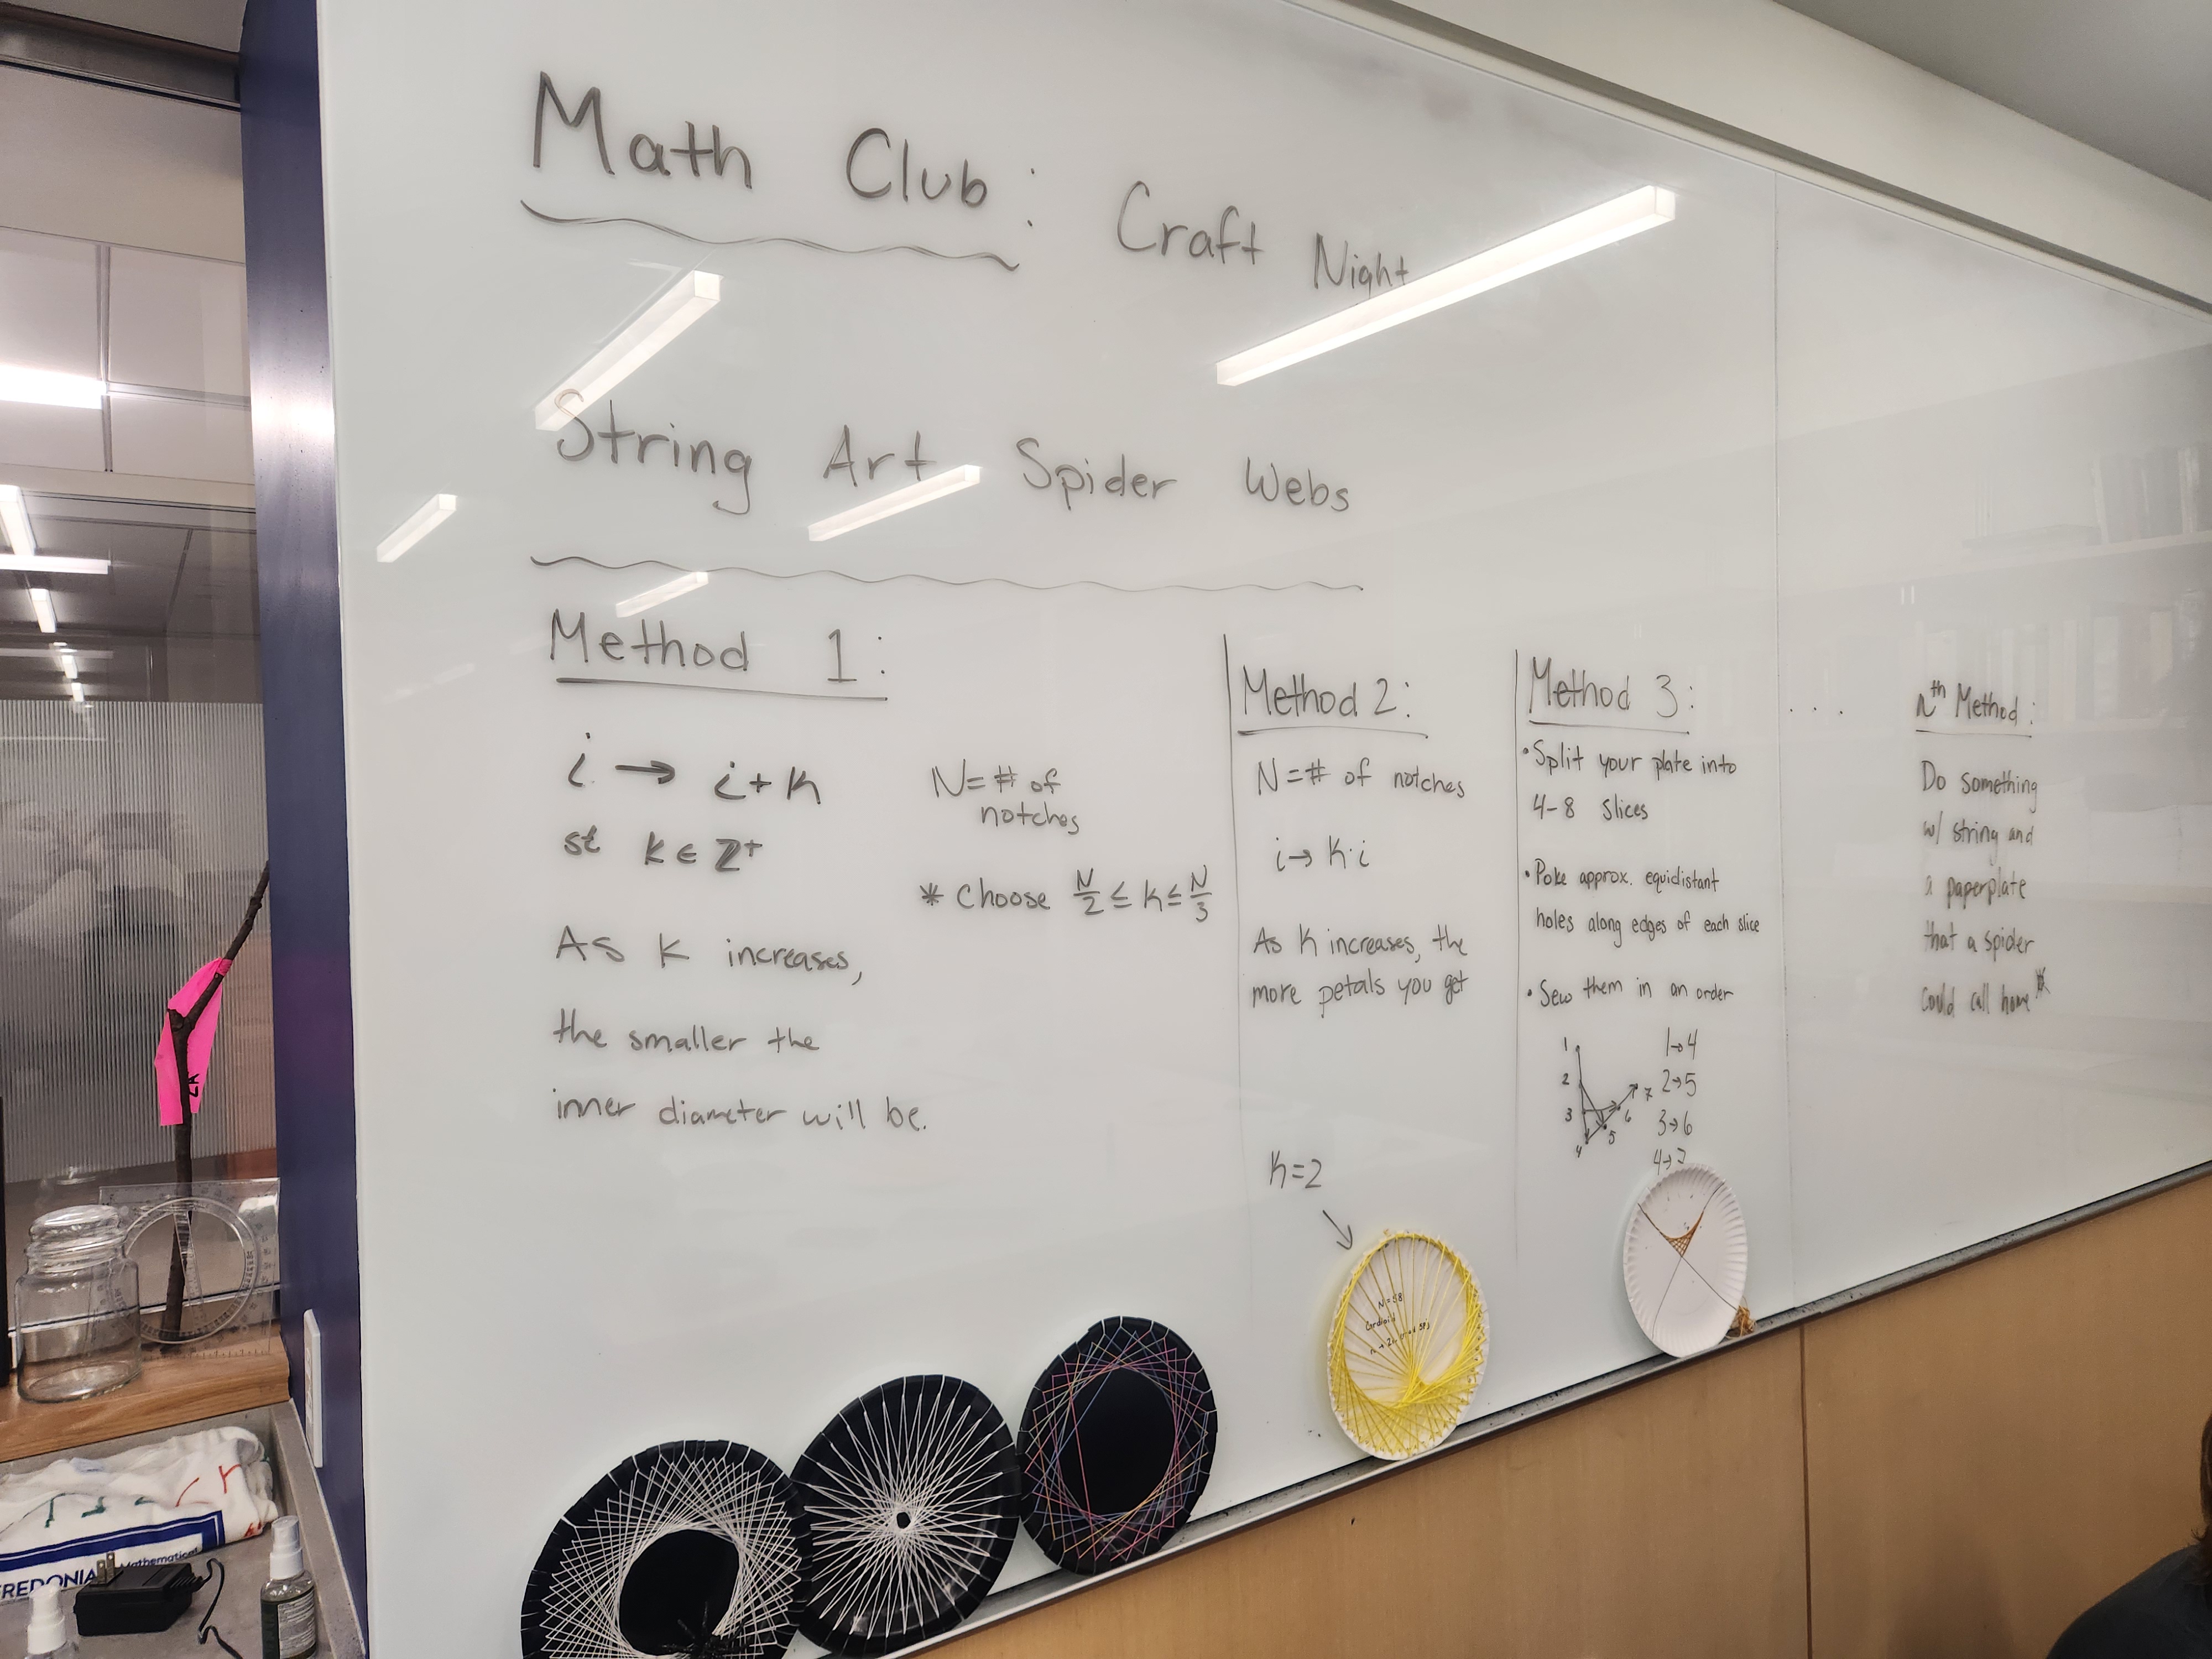 Math Club: Craft Night
String Art Spider Webs
Method 1:
i → i+k
st k ∈ ℤ⁺
As k increases,
the smaller the
inner diameter will be.
N = # of
notches
* Choose N/2 ≤ k ≤ N/3
Method 2:
N = # of notches
i → k·i
As k increases, the
more petals you get
k=2
N=58
Cardioid
Method 3:
• Split your plate into
4-8 slices
• Poke approx. equidistant
holes along edges of each slice
• Sew them in an order
1
2
3
4
5
6
7
1→4
2→5
3→6
4→7
...
nᵗʰ Method:
Do something
w/ string and
a paperplate
that a spider
could call home
Mathematical
FREDONIA